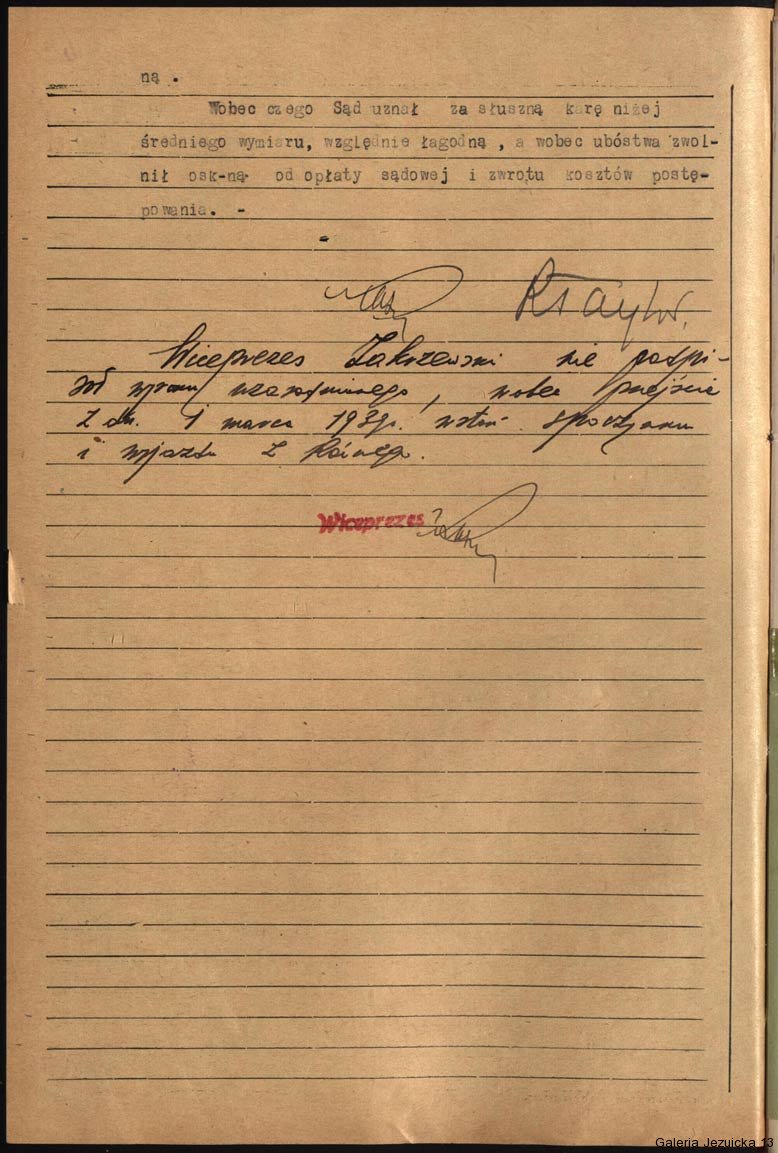 ną .
Wobec czego Sąd uznał za słuszną karę niżej
średniego wymiaru, względnie łagodną , a wobec ubóstwa zwol-
nił osk-ną od opłaty sądowej i zwrotu kosztów postę-
powania. -
Wiceprezes Zakrzewski nie podpi-
sał wobec przejścia
z dn. 1 marca 1939r. w stan spoczynku
i wyjazdu z
Wiceprezes
Galeria Jezuicka 13